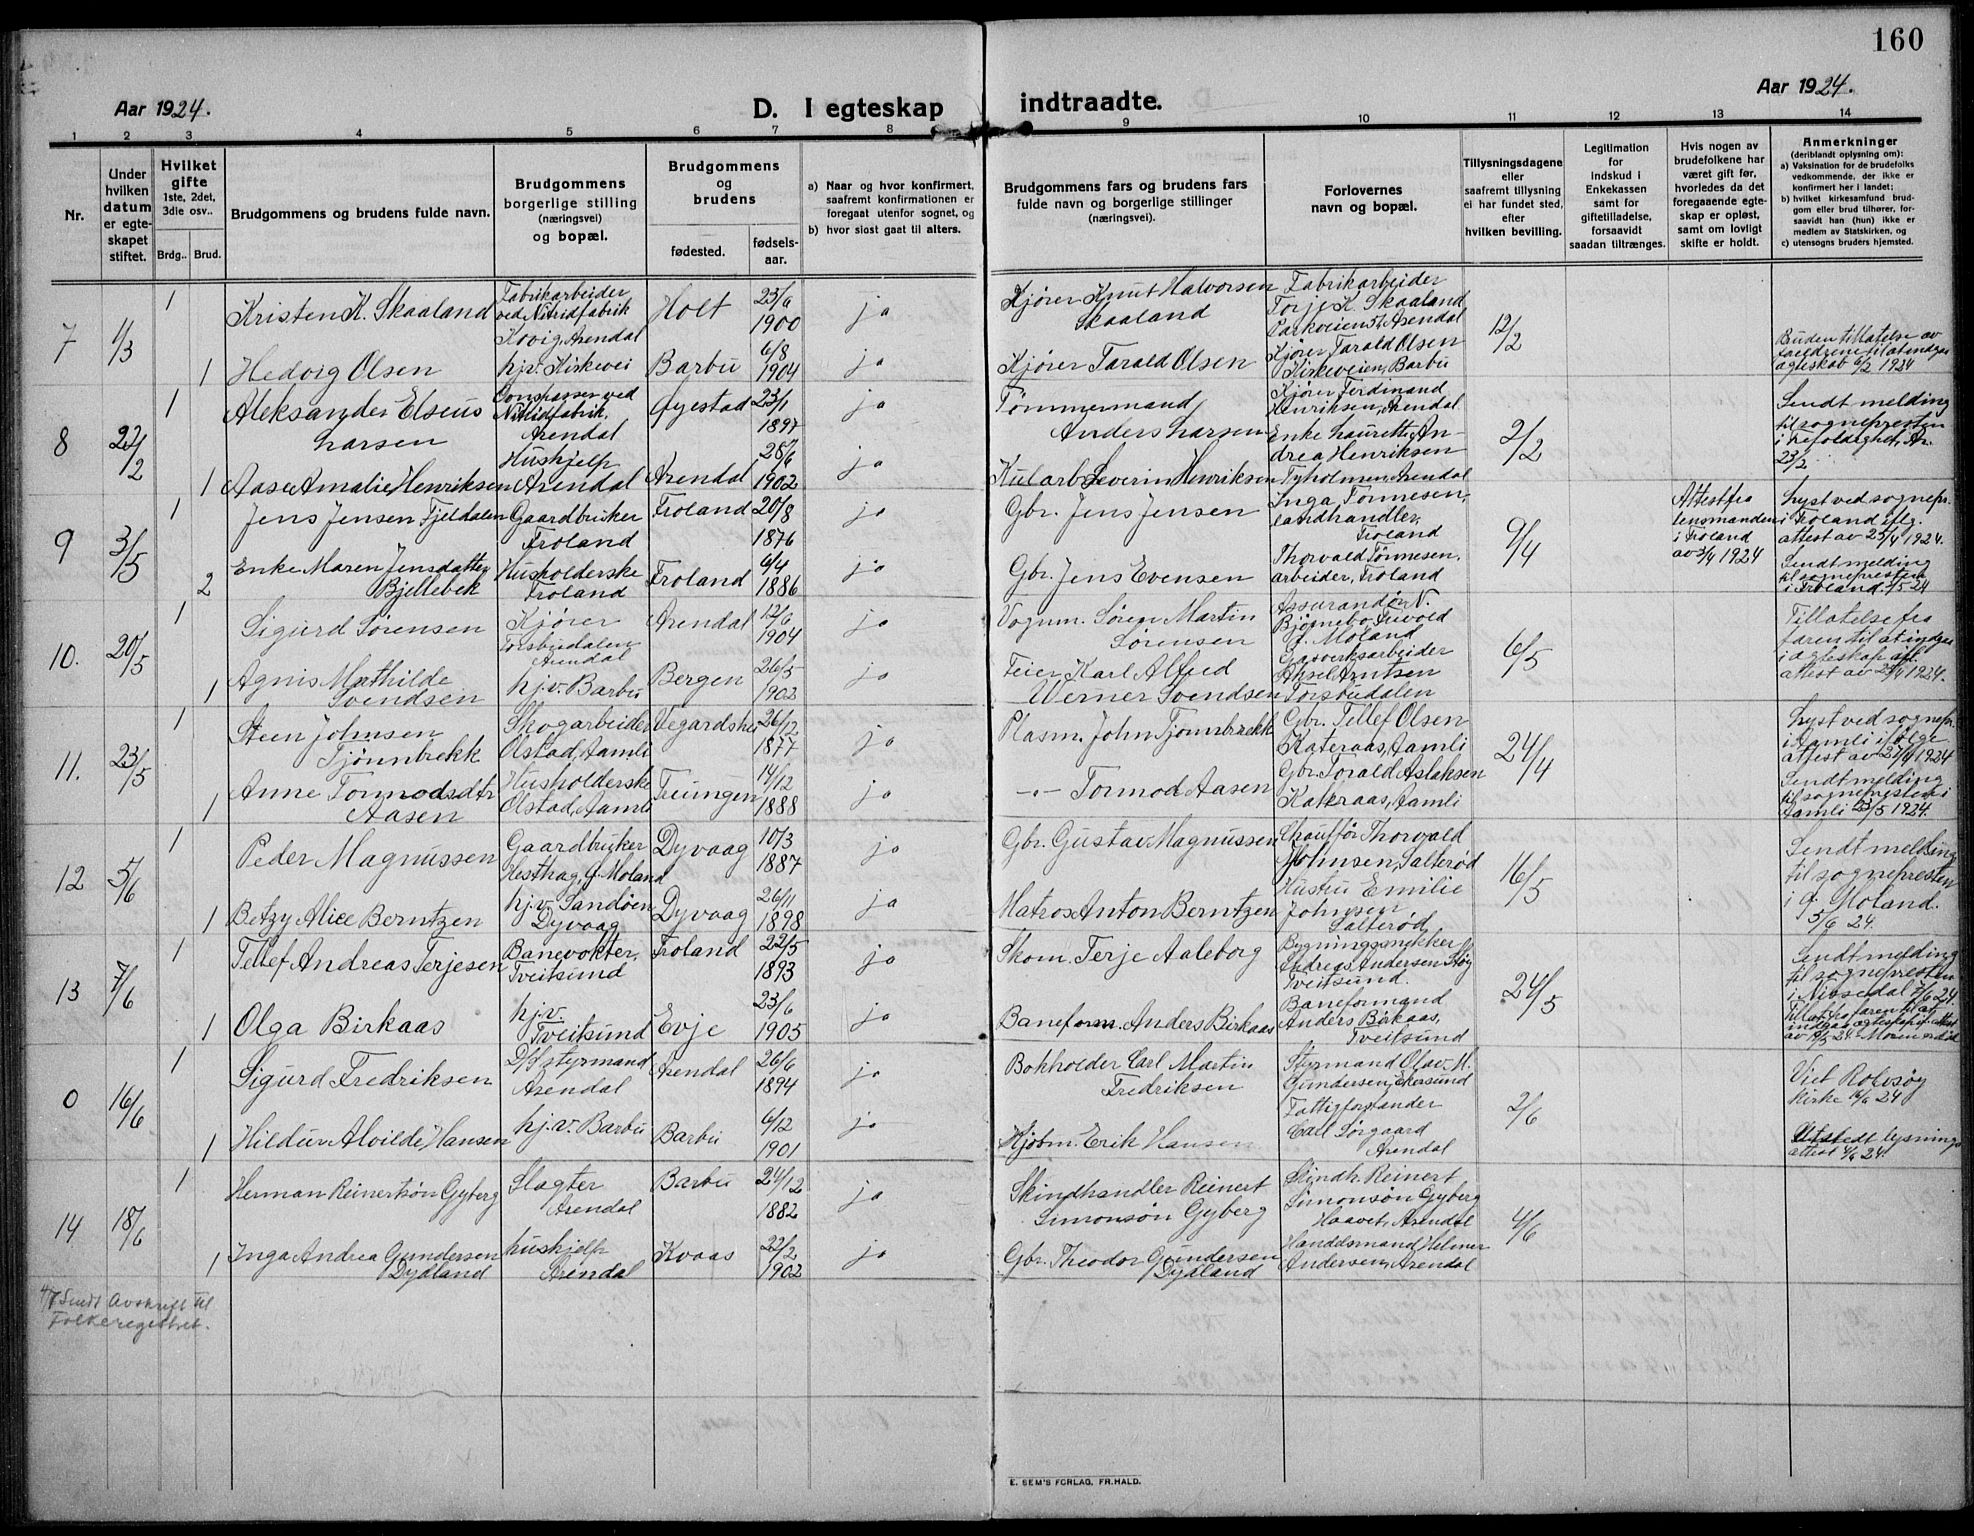 160
Aar 1924.
D. I egteskap indtraadte.
Aar 1924.
1 2 3 4 5 6 7 8 9 10 11 12 13 14
Nr.
Under
hvilken
datum
er egte-
skapet
stiftet.
Hvilket
gifte
1ste, 2det,
3die osv..
Brdg.. Brud.
Brudgommens og brudens fulde navn.
Brudgommens
borgerlige stilling
(næringsvei)
og bopæl.
Brudgommens
og
brudens
fødested.
fødsels-
aar.
a) Naar og hvor konfirmert,
saafremt konfirmationen er
foregaat utenfor sognet, og
b) hvor sisst gaat til alters.
Brudgommens fars og brudens fars
fulde navn og borgerlige stillinger
(næringsvei).
Forlovernes
navn og bopæl.
Tillysningsdagene
eller
saafremt tillysning
ei har fundet sted,
efter
hvilken bevilling.
Legitimation
for
indskud i
Enkekassen
samt for
giftetilladelse,
forsaavidt
saadan tiltrænges.
Hvis nogen av
brudefolkene har
været gift før,
hvorledes da det
foregaaende egte-
skap er opløst,
samt om lovligt
skifte er holdt.
Anmerkninger
(deriblandt oplysning om):
a) Vaksination for de brudefolks
vedkommende, der ikke er
konfirmert her i landet;
b) hvilket kirkesamfund brud-
gom eller brud tilhører, for-
saavidt han (hun) ikke er
medlem av Statskirken, og
c) utensogns bruders hjemsted.
7
1/3
1
Kristen K. Skaaland
Fabrikarbeider
ved Nitridfabrik
Arendal
Holt
23/6
1900
ja
Kjører Knut Halvorsen
Skaaland
Fabrikarbeider
Torje K. Skaaland
Parkveien 51 Arendal
12/2
1
Hedvig Olsen
hjv. Kirkevei
Barbu
6/8
1904
ja
Kjører Tarald Olsen
Kjører Tarald Olsen
Kirkeveien, Barbu
Bruden tillatelse av
forældrene til at indgaa
ægteskab 6/2 1924
8
22/2
1
Aleksander Elseus
Larsen
Ovnspasser ved
Nitridfabrik,
Arendal
Øyestad
23/1
1897
ja
Tømmermand
Anders Larsen
Kjører Ferdinand
Henriksen, Arendal
2/2
Sendt melding
til sognepresten
i Trefoldighet, Ar.
23/2
1
Aase Amalie Henriksen
Hushjelp
Arendal
Arendal
28/6
1902
ja
Kularb. Severin Henriksen
Enke Laurette An-
drea Henriksen
Tyholmen, Arendal
9
3/5
1
Jens Jensen Fjeldalen
Gaardbruker
Froland
Froland
20/8
1876
ja
Gbr. Jens Jensen
Inga Tønnesen,
landhandler,
Froland
9/4
Attest fra
lensmanden
i Froland
av 3/4 1924
Lyst ved sognepr.
i Froland iflg.
attest av 25/4 1924.
2
Enke Maren Jensdatter
Bjellebek
Husholderske
Froland
Froland
6/4
1886
ja
Gbr. Jens Evensen
Thorvald Tønnesen,
arbeider, Froland
Sendt melding
til sognepresten
i Froland 3/5 24
10.
20/5
1
Sigurd Sørensen
Kjører
Torsbudalen
Arendal
Arendal
12/6
1904
ja
Vognm. Søren Martin
Sørensen
Assurandør N.
Bjørnebo, Trevold
Ø. Moland
6/5
Tillatelse fra
faren til at indgaa
i ægteskap iflg.
attest av 25/4 1924.
1
Agnis Mathilde
Svendsen
hj.v. Barbu
Bergen
26/5
1902
ja
Feier Karl Alfred
Werner Svendsen
Gasverksarbeider
Aksel Arntsen
Torsbudalen
11.
23/5
1
Steen Johnsen
Tjønnbrekk
Skogarbeider
Olstad, Aamli
Vegardshei
26/12
1877
ja
Plasm. John Tjønnbrekk
Gbr. Tellef Olsen
Kateraas, Aamli
24/4
Lyst ved sognepr.
i Aamli ifølge
attest av 27/4 1924
1
Anne Tormodsdtr
Aasen
Husholderske
Olstad, Aamli
Treungen
14/12
1888
ja
-"- Tormod Aasen
Gbr. Torald Aslaksen
Kateraas, Aamli
Sendt melding
til sognepresten i
Aamli 23/5 1924.
12
5/6
1
Peder Magnussen
Gaardbruker
Hesthag, Ø. Moland
Dyvaag
10/3
1887
ja
Gbr. Gustav Magnussen
Chauffør Thorvald
Johnsen, Salterød
16/5
Sendt melding
til sognepresten
i Ø. Moland.
5/6 24.
1
Betzy Alice Berntzen
hj.v. Sandøen
Dyvaag
Dyvaag
26/11
1898
ja
Matros Anton Berntzen
Hustru Emilie
Johnsen
Salterød
13
7/6
1
Tellef Andreas Terjesen
Banevokter,
Tveitsund
Froland
22/5
1893
ja
Skom. Terje Aaleborg
Bygningssnekker
Andreas Andersen Støy
Tveitsund.
24/5
Sendt melding
til sognepresten
i Nissedal 7/6 24.
Till. at fra faren til at
indgaa ægteskap if. attest
av 19/5 24. Moren er død
1
Olga Birkaas
hj.v.
Tveitsund
Evje
23/6
1905
ja
Baneform. Anders Birkaas
Baneformand
Anders Birkaas,
Tveitsund
0
16/6
1
Sigurd Fredriksen
D/S styrmand
Arendal
Arendal
26/6
1894
ja
Bokholder Carl Martin
Fredriksen
Styrmand Olav M.
Gundersen, Ekersund
2/6
Viet Rolvsøy
kirke 16/6 24
1
Hildur Alvilde Hansen
hj.v. Barbu
Barbu
6/12
1901
ja
Kjøbm. Erik Hansen
Fattigforstander
Carl Sørgaard
Arendal
Utstedt lysnings-
attest 4/6 24.
14
18/6
1
Herman Reinertsøn Gyberg
Slagter
Arendal
Barbu
24/12
1882
ja
Skindhandler Reinert
Simonsøn Gyberg
Skindh. Reinert
Simonsøn Gyberg
Haavet, Arendal
4/6
1
Inga Andrea Gundersen
Dydland
hushjelp
Arendal
Kvaas
22/2
1902
ja
Gbr. Theodor Gundersen
Dydland
Handelsmand Helmer
Andersen, Arendal
4/7 Sendt Avskrift til
Folkeregistret.
E. SEM'S FORLAG, FR.HALD.